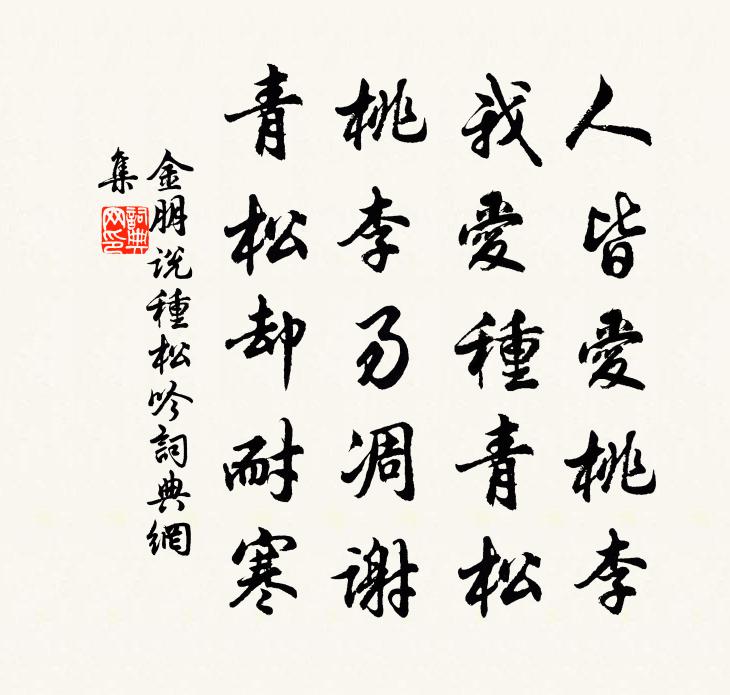 人皆愛桃李
我愛種青松
桃李易凋谢
青松却耐寒
金朋说種松吟詞典網
集
詞典網印